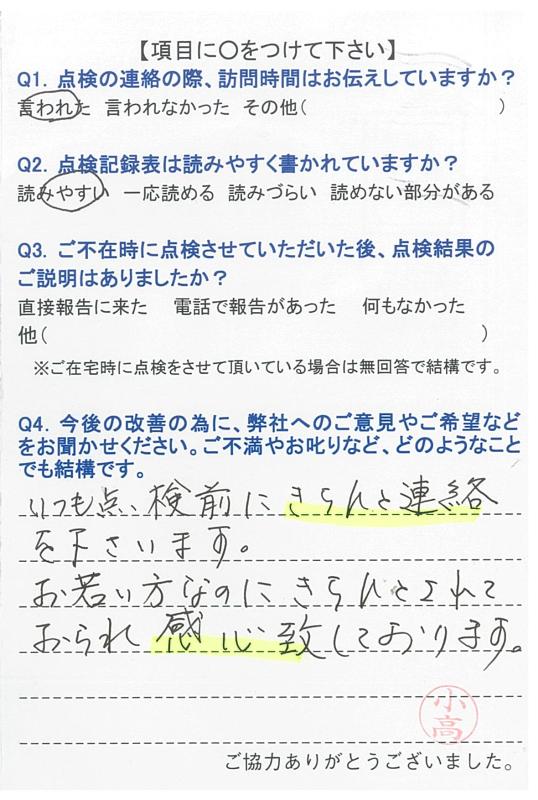 【項目に〇をつけて下さい】
Q1. 点検の連絡の際、訪問時間はお伝えしていますか？
言われた 言われなかった その他( )
Q2. 点検記録表は読みやすく書かれていますか？
読みやすい 一応読める 読みづらい 読めない部分がある
Q3. ご不在時に点検させていただいた後、点検結果の
ご説明はありましたか？
直接報告に来た 電話で報告があった 何もなかった
他( )
※ご在宅時に点検をさせて頂いている場合は無回答で結構です。
Q4. 今後の改善の為に、弊社へのご意見やご希望など
をお聞かせください。ご不満やお叱りなど、どのようなこと
でも結構です。
いつも点検前にきちんと連絡
を下さいます。
お若い方なのにきちんとされて
おられ感心致しております。
小高
ご協力ありがとうございました。